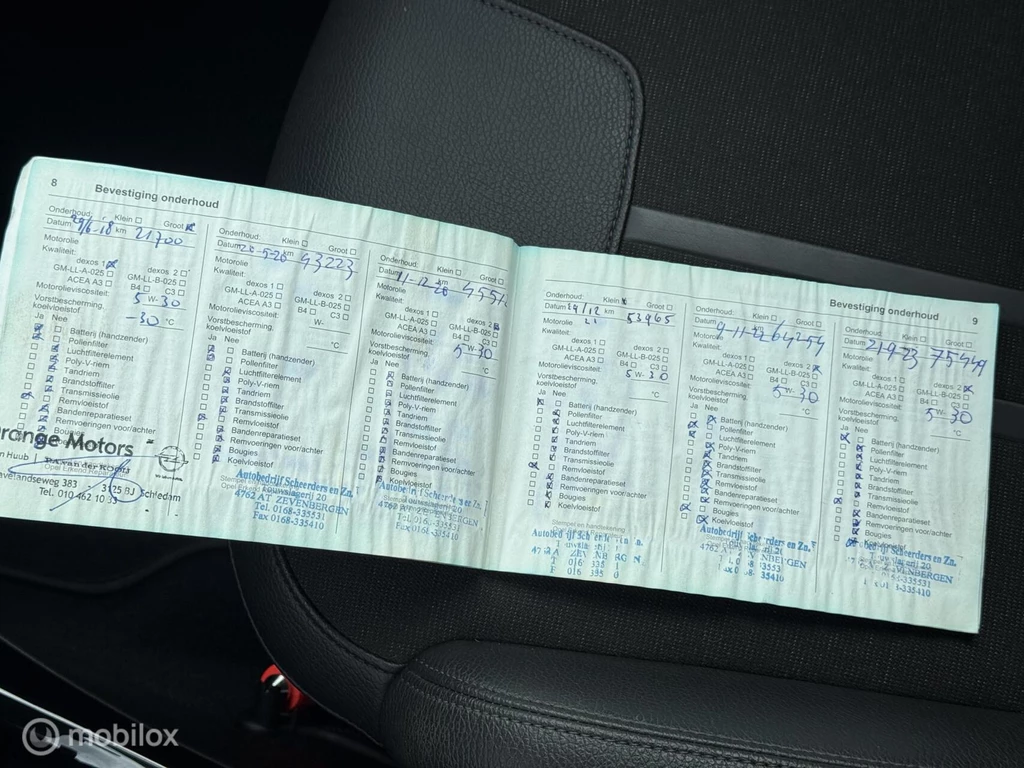 8 Bevestiging onderhoud
Onderhoud: Klein Groot
Datum 29/6-18 km 21700
Motorolie
Kwaliteit: dexos 1 dexos 2
GM-LL-A-025 GM-LL-B-025
ACEA A3 B4 C3
Motorolieviscositeit: 5 W-30
Vorstbescherming, koelvloeistof -30 °C
Ja Nee
Batterij (handzender)
Pollenfilter
Luchtfilterelement
Poly-V-riem
Tandriem
Brandstoffilter
Transmissieolie
Remvloeistof
Bandenreparatieset
Remvoeringen voor/achter
Bougies
Motors
Opel Erkend
383 3125 BJ Schiedam
Tel. 010 462 10 33
Onderhoud: Klein Groot
Datum km 43223
Motorolie
Kwaliteit: dexos 1 dexos 2
GM-LL-A-025 GM-LL-B-025
ACEA A3 B4 C3
Motorolieviscositeit: W-
Vorstbescherming, koelvloeistof °C
Ja Nee
Batterij (handzender)
Pollenfilter
Luchtfilterelement
Poly-V-riem
Tandriem
Brandstoffilter
Transmissieolie
Remvloeistof
Bandenreparatieset
Remvoeringen voor/achter
Bougies
Koelvloeistof
Autobedrijf Scheerders en Zn.
4762 AT ZEVENBERGEN
Tel. 0168-335531
Fax 0168-335410
Onderhoud: Klein Groot
Datum 11-12-20 km
Motorolie
Kwaliteit: dexos 1 dexos 2
GM-LL-A-025 GM-LL-B-025
ACEA A3 B4 C3
Motorolieviscositeit: 5 W-30
Vorstbescherming, koelvloeistof °C
Ja Nee
Batterij (handzender)
Pollenfilter
Luchtfilterelement
Poly-V-riem
Tandriem
Brandstoffilter
Transmissieolie
Remvloeistof
Bandenreparatieset
Remvoeringen voor/achter
Bougies
Koelvloeistof
Bevestiging onderhoud 9
Onderhoud: Klein Groot
Datum km 53965
Motorolie
Kwaliteit: dexos 1 dexos 2
GM-LL-A-025 GM-LL-B-025
ACEA A3 B4 C3
Motorolieviscositeit: 5 W-30
Vorstbescherming, koelvloeistof °C
Ja Nee
Batterij (handzender)
Pollenfilter
Luchtfilterelement
Poly-V-riem
Tandriem
Brandstoffilter
Transmissieolie
Remvloeistof
Bandenreparatieset
Remvoeringen voor/achter
Bougies
Koelvloeistof
Stempel en handtekening
Onderhoud: Klein Groot
Datum 9-11-22 64254
Motorolie
Kwaliteit: dexos 1 dexos 2
GM-LL-A-025 GM-LL-B-025
ACEA A3 B4 C3
Motorolieviscositeit: 5 W-30
Vorstbescherming, koelvloeistof °C
Ja Nee
Batterij (handzender)
Pollenfilter
Luchtfilterelement
Poly-V-riem
Tandriem
Brandstoffilter
Transmissieolie
Remvloeistof
Bandenreparatieset
Remvoeringen voor/achter
Bougies
Koelvloeistof
Onderhoud: Klein Groot
Datum 21-9-23 75449
Motorolie
Kwaliteit: dexos 1 dexos 2
GM-LL-A-025 GM-LL-B-025
ACEA A3 B4
Motorolieviscositeit: 5 W-30
Vorstbescherming, koelvloeistof °C
Ja Nee
Batterij (handzender)
Pollenfilter
Luchtfilterelement
Poly-V-riem
Tandriem
Brandstoffilter
Transmissieolie
Remvloeistof
Bandenreparatieset
Remvoeringen voor/achter
Bougies
Koelvloeistof
mobilox